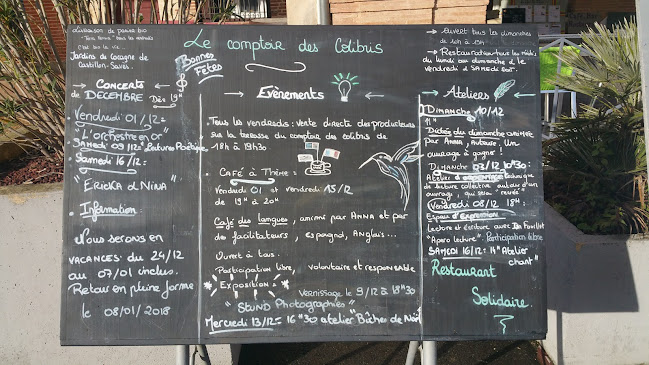 Livraison de panier bio
Tous les vendredis
Jardins de Cocagne de
Castillon-Savès
Le comptoir des Colibris
Bonnes
Fêtes
→ Ouvert tous les dimanches
de 10h à 15h
→ Restauration tous les midis
du lundi au dimanche et le
vendredi et SAMEDI soir.
→ CONCERTS
DE DÉCEMBRE Dès 19h
• Vendredi 01/12 =
"L'orchestre en or"
• SAMEDI 09/12 = Lecture Poétique
• Samedi 16/12 =
"Ericka & Nina"
• Information
Nous serons en
VACANCES : du 24/12
au 07/01 inclus.
Retour en pleine forme
le 08/01/2018
→ Evènements ←
• Tous les vendredis : vente directe des producteurs
sur la terrasse du comptoir des colibris de
18h à 19h30
• CAFÉ à Thème =
Vendredi 01 et vendredi 15/12
de 19h à 20h
• Café des langues, animé par ANNA et par
de facilitateurs, espagnol, Anglais...
Ouvert à tous.
Participation libre, volontaire et responsable
• Exposition = Vernissage le 9/12 à 18h30
"Stund Photographies"
Mercredi 13/12 = 16h30 atelier "Bûches de Noël"
→ Ateliers ←
DIMANCHE 10/12
11h
Dictée du dimanche animée
par Anna, Auteure. Un
ouvrage à gagner !
DIMANCHE 03/12 10h30 :
Atelier d'arpentage technique
de lecture collective autour d'un
ouvrage,
Vendredi 08/12 18h :
Espace d'expression
Lecture et écriture avec
"Apéro lecture" - Participation libre
SAMEDI 16/12 = 14h "Atelier
chant"
Restaurant
Solidaire